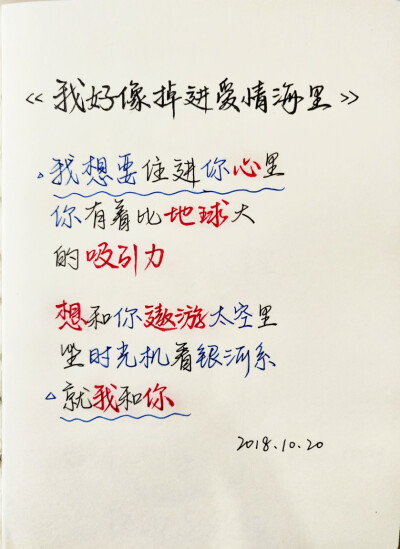 《我好像掉进爱情海里》
我想要住进你心里
你有着比地球大
的吸引力
想和你遨游太空里
坐时光机看银河系
就我和你
2018.10.20